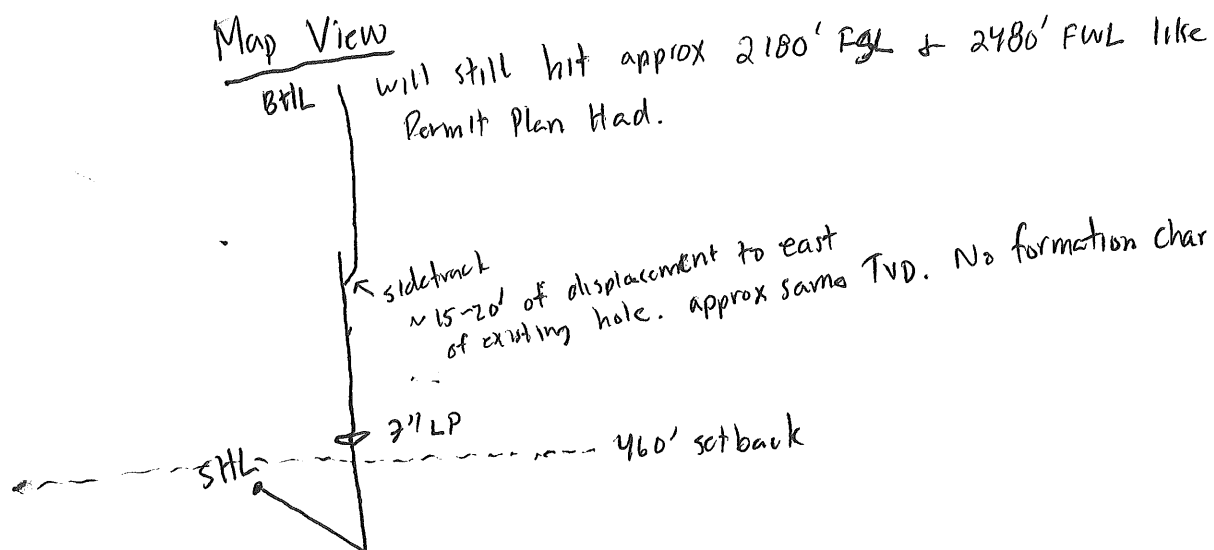 Map View
BHL
will still hit approx 2180' FSL + 2480' FWL like
Permit Plan Had.
sidetrack
~ 15-20' of displacement to east
of existing hole. approx same TVD. No formation char
7" LP
460' setback
SHL